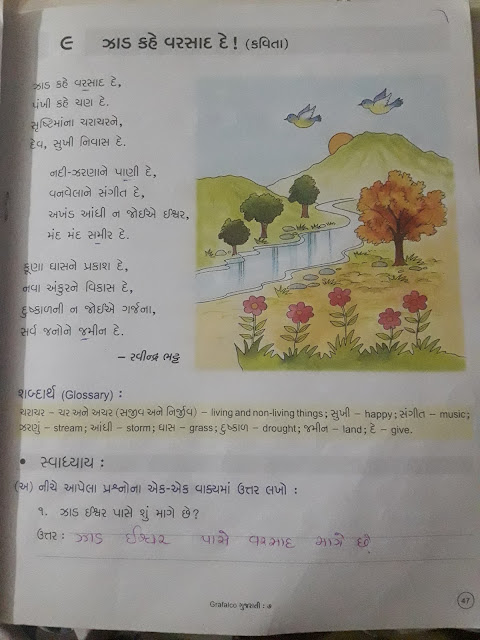 ૯ ઝાડ કહે વરસાદ દે! (કવિતા)
ઝાડ કહે વરસાદ દે,
પંખી કહે ચણ દે.
સૃષ્ટિમાંના ચરાચરને,
દેવ, સુખી નિવાસ દે.
નદી-ઝરણાને પાણી દે,
વનવેલાને સંગીત દે,
અખંડ આંધી ન જોઈએ ઈશ્વર,
મંદ મંદ સમીર દે.
કૂણા ઘાસને પ્રકાશ દે,
નવા અંકુરને વિકાસ દે,
દુષ્કાળની ન જોઈએ ગર્જના,
સર્વ જનોને જમીન દે.
– રવીન્દ્ર ભટ્ટ
શબ્દાર્થ (Glossary) :
ચરાચર – ચર અને અચર (સજીવ અને નિર્જીવ) – living and non-living things; સુખી – happy; સંગીત – music;
ઝરણું – stream; આંધી – storm; ઘાસ – grass; દુષ્કાળ – drought; જમીન – land; દે – give.
• સ્વાધ્યાય :
(અ) નીચે આપેલા પ્રશ્નોના એક-એક વાક્યમાં ઉત્તર લખો :
૧. ઝાડ ઈશ્વર પાસે શું માગે છે?
ઉત્તર : ઝાડ ઈશ્વર પાસે વરસાદ માગે છે.
Grafalco ગુજરાતી : ૭
47